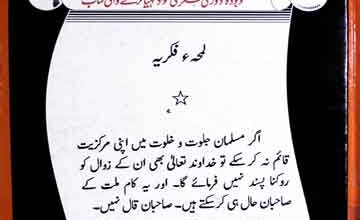 لمحہء فکریہ
اگر مسلمان جلوت و خلوت میں اپنی مرکزیت
قائم نہ کر سکے تو خداوند تعالیٰ بھی ان کے زوال کو
روکنا پسند نہیں فرمائے گا۔ اور یہ کام ملت کے
صاحبان حال ہی کر سکتے ہیں۔ صاحبان قال نہیں۔